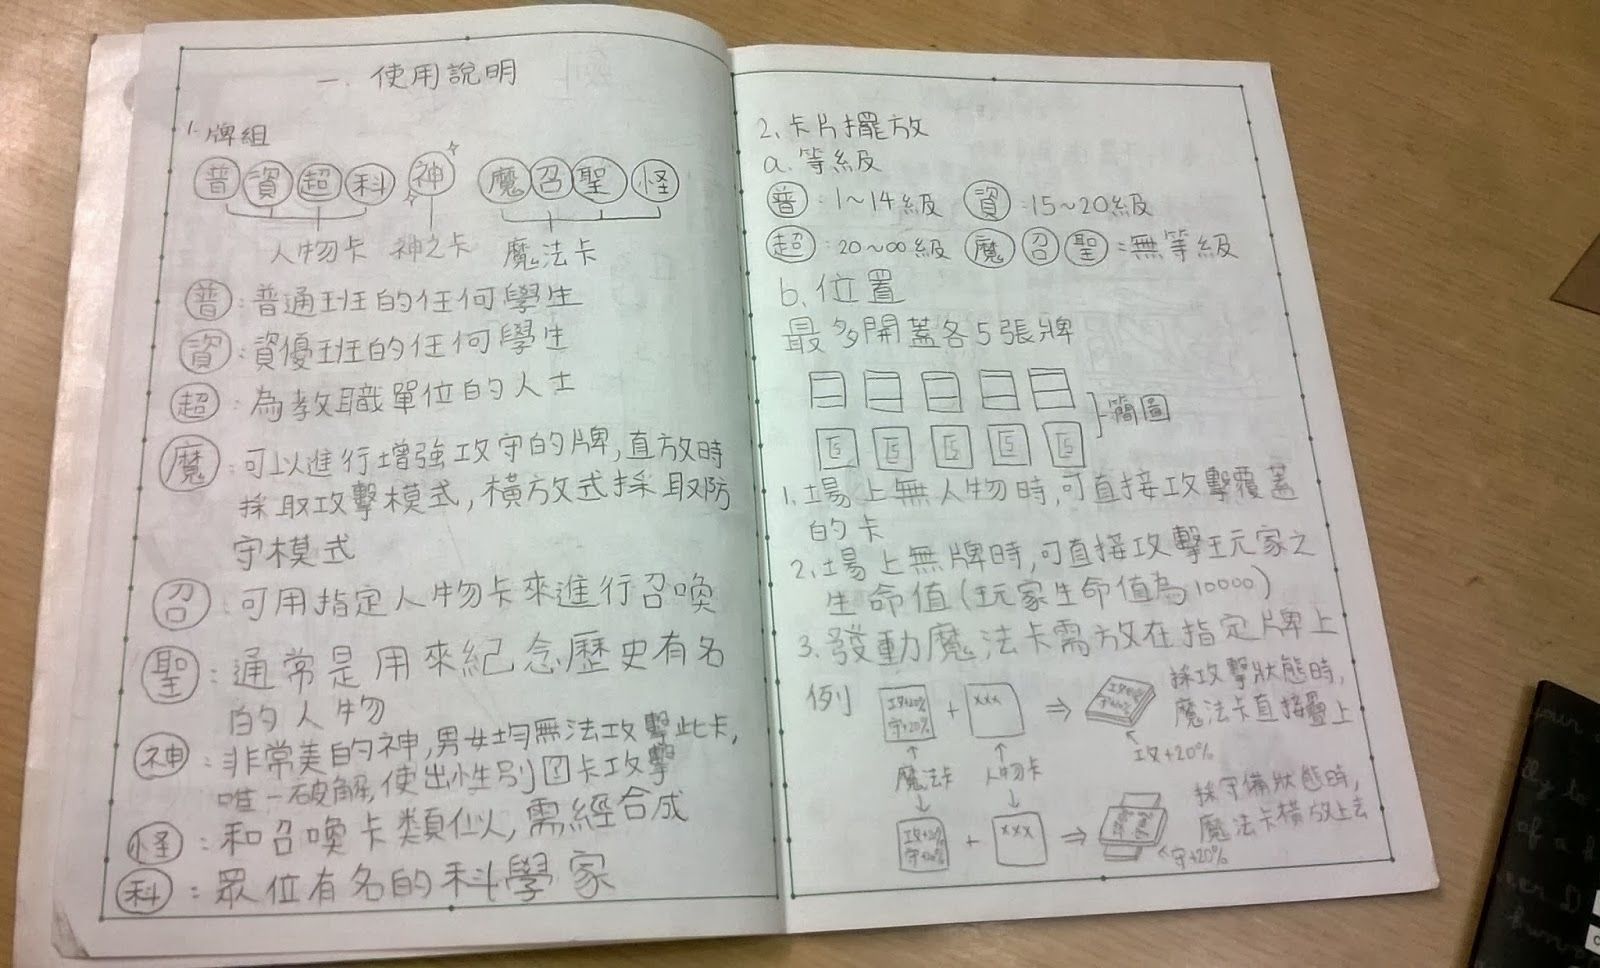 一. 使用說明
1. 牌組
普 資 超 科 神 魔 召 聖 怪
人物卡 神之卡 魔法卡
普:普通班的任何學生
資:資優班的任何學生
超:為教職單位的人士
魔:可以進行增強攻守的牌,直放時
採取攻擊模式,橫放式採取防
守模式
召:可用指定人物卡來進行召喚
聖:通常是用來紀念歷史有名
的人物
神:非常美的神,男女均無法攻擊此卡,
唯一破解,使出性別卡攻擊
怪:和召喚卡類似,需經合成
科:眾位有名的科學家
2. 卡片擺放
a. 等級
普:1~14級 資:15~20級
超:20~∞級 魔 召 聖:無等級
b. 位置
最多開蓋各5張牌
簡圖
1. 場上無人物時,可直接攻擊覆蓋
的卡
2. 場上無牌時,可直接攻擊玩家之
生命值(玩家生命值為10000)
3. 發動魔法卡需放在指定牌上
例
攻+20%
守+20%
+
xxx
⇒
採攻擊狀態時,
魔法卡直接疊上
攻+20%
魔法卡 人物卡
攻+20%
守+20%
+
xxx
⇒
採守備狀態時,
魔法卡橫放上去
守+20%